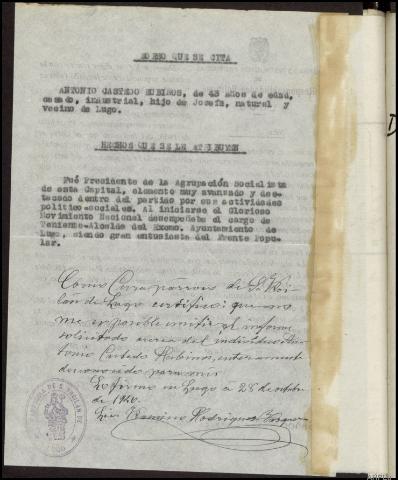 ANTONIO CASTEDO RUBINOS, de 43 años de edad,
casado, industrial, hijo de Josefa, natural y
vecino de Lugo.
HECHOS QUE SE LE ATRIBUYEN
Fué Presidente de la Agrupación Socialista
de esta Capital, elemento muy avanzado y des-
tacado dentro del partido por sus actividades
político-sociales. Al iniciarse el Glorioso
Movimiento Nacional desempeñaba el cargo de
Teniente-Alcalde del Excmo. Ayuntamiento de
Lugo, siendo gran entusiasta del Frente Popu-
lar.
Como Cura párroco de S. Froi-
lán de Lugo certifico: que no
me es posible emitir el informe
solicitado acerca del individuo An-
tonio Castedo Rubinos, enteramente
desconocido para mí.
Lo firmo en Lugo a 28 de octubre
de 1940.
Ramiro Rodríguez